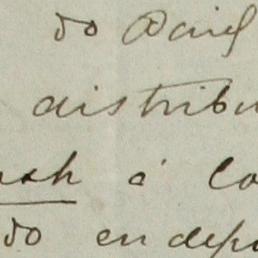 do Paiz
distribu
ash á Co
do en depo